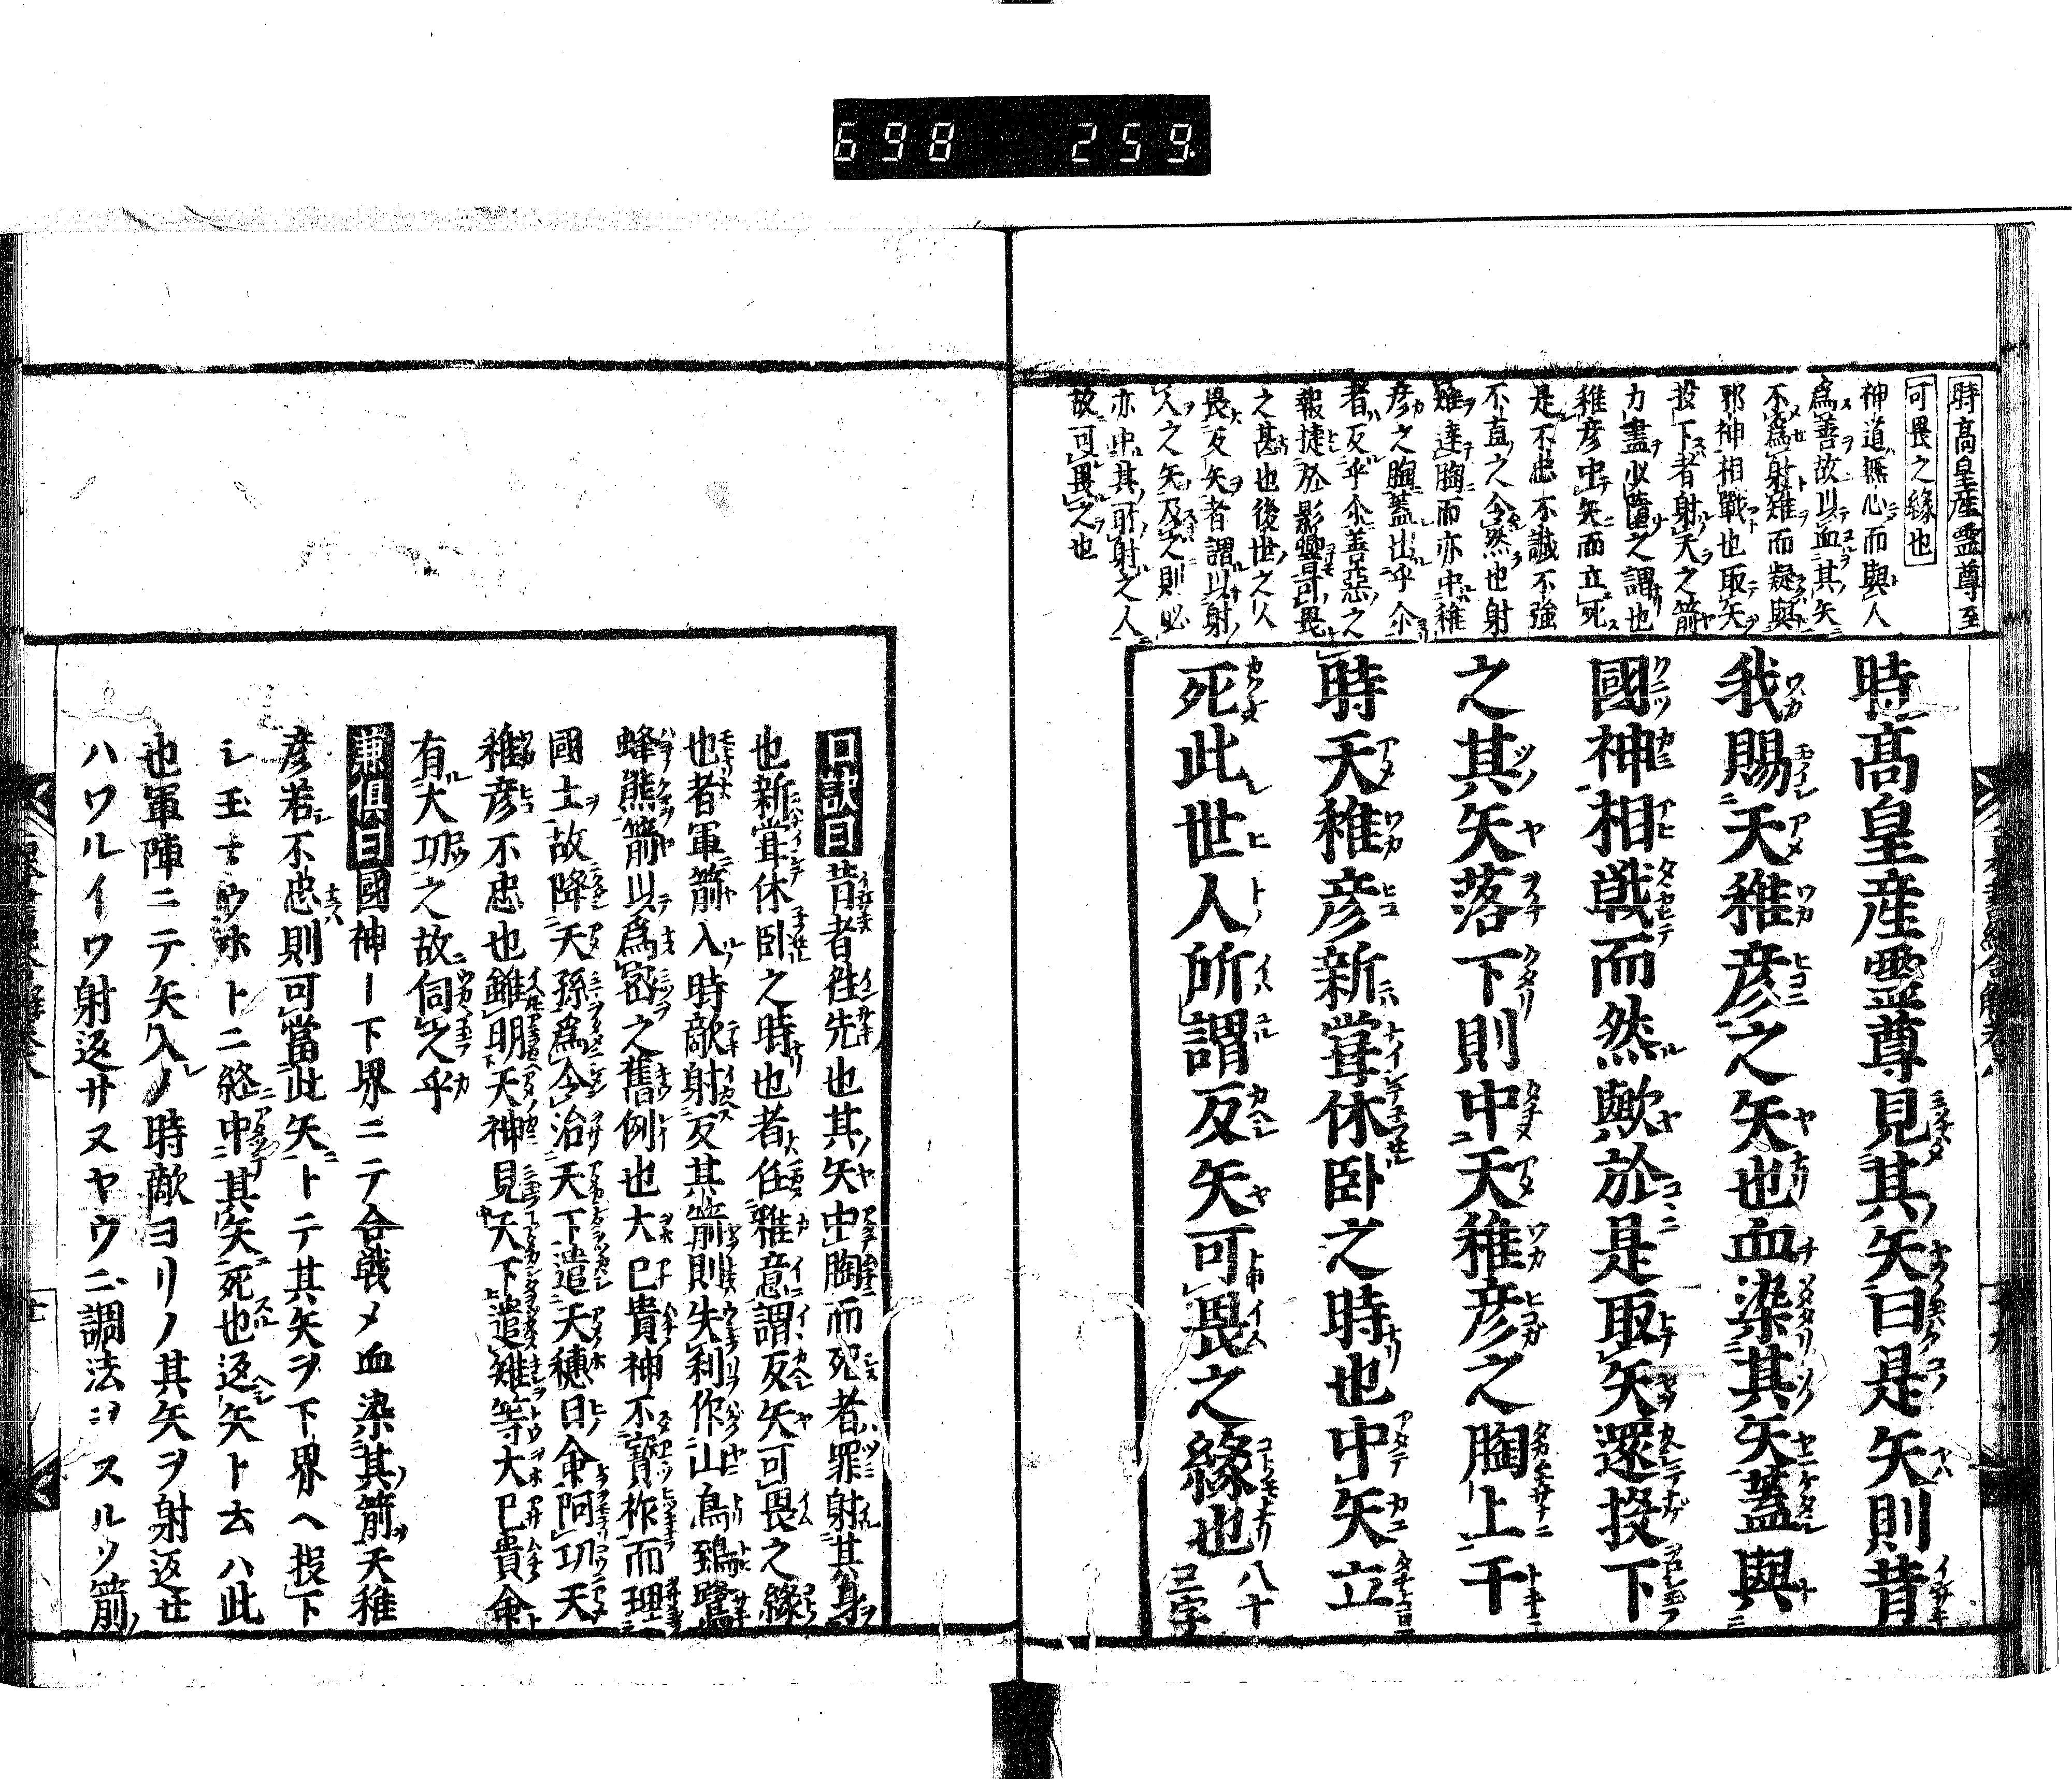 698 259.
時高皇産霊尊至
可畏之縁也
神道無心而與人
為善故以血其矢
不為射雉而疑與
邪神相戰也取矢
投下者射天之箭
力盡必墮之謂也
稚彦中矢而立死
是不忠不誠不強
不直之令然也射
雉達胸而亦中稚
彦之胸蓋出乎尓
者反乎尓善惡之
報捷於影響可畏
之甚也後世之人
畏反矢者謂以射
人之矢及之則必
亦中其所射之人
故可畏之也
時高皇産霊尊見其矢曰是矢則昔
我賜天稚彦之矢也血染其矢蓋與
國神相戦而然歟於是取矢還投下
之其矢落下則中天稚彦之胸上于
時天稚彦新甞休臥之時也中矢立
死此世人所謂反矢可畏之縁也 八十二字
口訣曰昔者往先也其矢中胸而死者罪射其身
也新甞休臥之時也者任雅意謂反矢可畏之縁
也者軍箭入時敵射反其箭則失利作山鳥鵄鷺
蜂熊箭以為密之舊例也大己貴神不寶祚而理
國土故降天孫為令治天下遣天穂日命阿功天
稚彦不忠也雖明天神見天下遣雉等大己貴命
有大功之故伺之乎
兼倶曰國神ー下界ニテ合戦メ血染其箭天稚
彦若不忠則可當此矢トテ其矢ヲ下界ヘ投下
シ玉ウホトニ終中其矢死也返矢ト云ハ此
也軍陣ニテ矢入ノ時敵ヨリノ其矢ヲ射返セ
ハワルイワ射返サヌヤウニ調法ヲスルソ箭